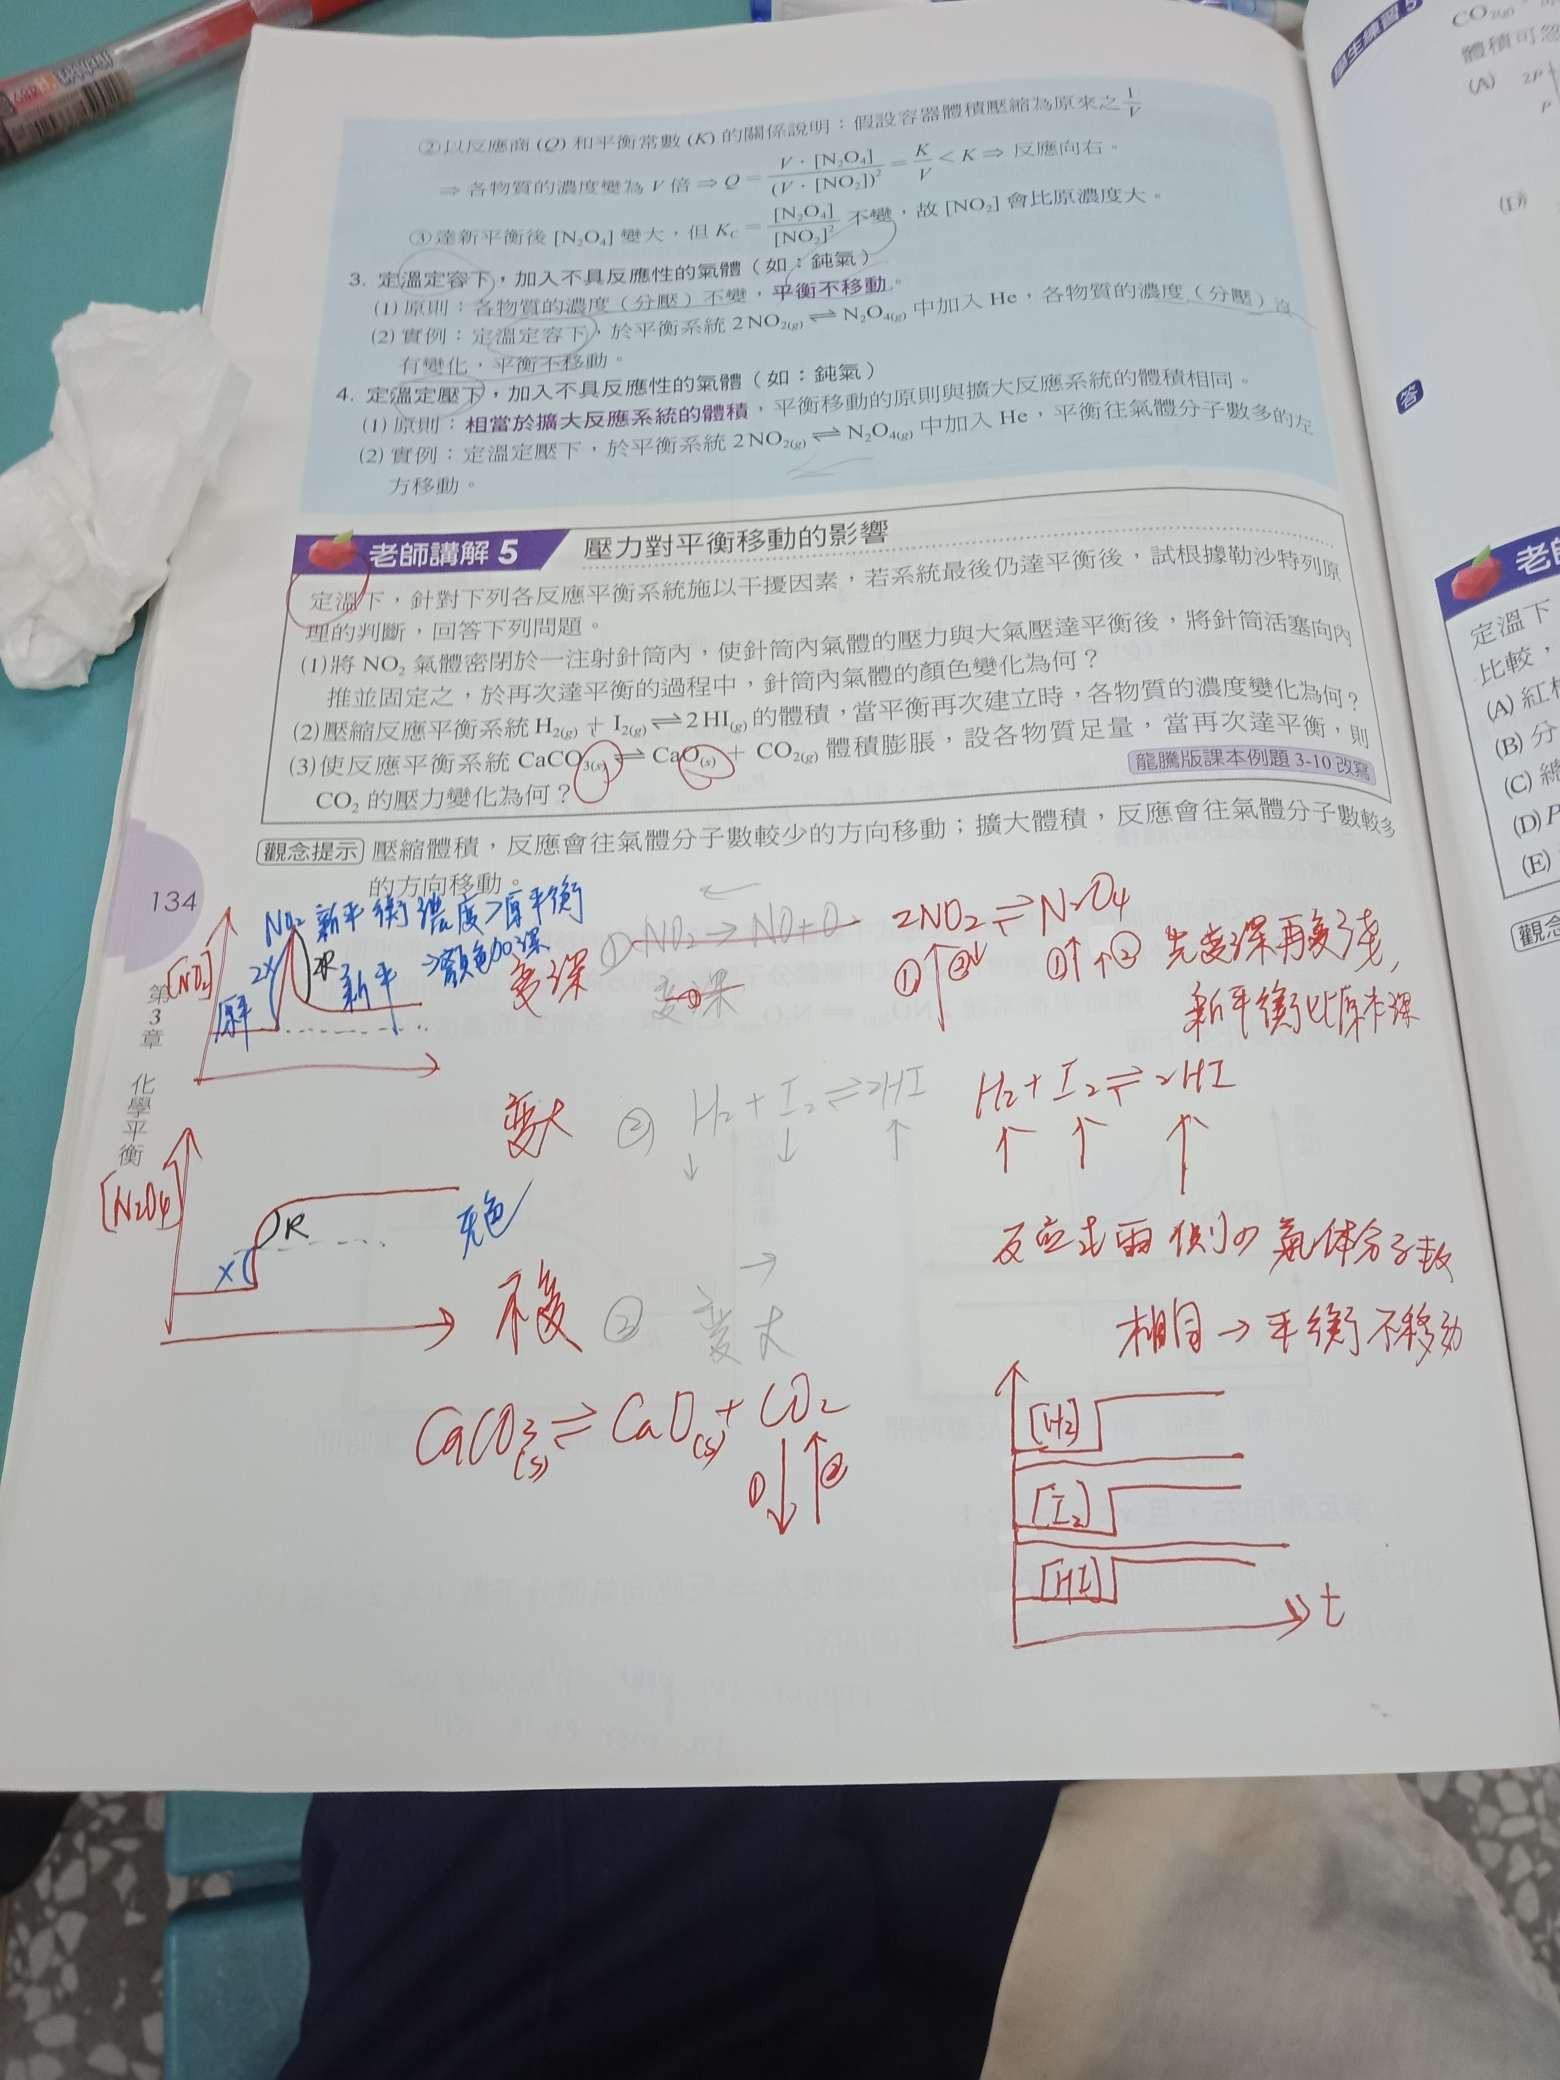 ②以反應商 (Q) 和平衡常數 (K) 的關係說明:假設容器體積壓縮為原來之 1/V
⇒ 各物質的濃度變為 V 倍 ⇒ Q = V・[N₂O₄] / (V・[NO₂])² = K/V < K ⇒ 反應向右。
③達新平衡後 [N₂O₄] 變大,但 K_C = [N₂O₄] / [NO₂]² 不變,故 [NO₂] 會比原濃度大。
3. 定溫定容下,加入不具反應性的氣體(如:鈍氣)
(1) 原則:各物質的濃度(分壓)不變,平衡不移動。
(2) 實例:定溫定容下,於平衡系統 2NO₂(g) ⇌ N₂O₄(g) 中加入 He,各物質的濃度(分壓)沒
有變化,平衡不移動。
4. 定溫定壓下,加入不具反應性的氣體(如:鈍氣)
(1) 原則:相當於擴大反應系統的體積,平衡移動的原則與擴大反應系統的體積相同。
(2) 實例:定溫定壓下,於平衡系統 2NO₂(g) ⇌ N₂O₄(g) 中加入 He,平衡往氣體分子數多的左
方移動。
老師講解 5 壓力對平衡移動的影響
定溫下,針對下列各反應平衡系統施以干擾因素,若系統最後仍達平衡後,試根據勒沙特列原
理的判斷,回答下列問題。
(1)將 NO₂ 氣體密閉於一注射針筒內,使針筒內氣體的壓力與大氣壓達平衡後,將針筒活塞向內
推並固定之,於再次達平衡的過程中,針筒內氣體的顏色變化為何?
(2)壓縮反應平衡系統 H₂(g) + I₂(g) ⇌ 2HI(g) 的體積,當平衡再次建立時,各物質的濃度變化為何?
(3)使反應平衡系統 CaCO₃(s) ⇌ CaO(s) + CO₂(g) 體積膨脹,設各物質足量,當再次達平衡,則
CO₂ 的壓力變化為何?
龍騰版課本例題 3-10 改寫
觀念提示 壓縮體積,反應會往氣體分子數較少的方向移動;擴大體積,反應會往氣體分子數較多
的方向移動。
134
第3章 化學平衡
NO₂ 新平衡濃度>原平衡
→顏色加深
[NO₂]
原平
2X
2R
新平
變深
① NO₂ → NO + O
變深
2NO₂ ⇌ N₂O₄
①↑②↓ ①↑↑②
先變深再變淺,
新平衡比原本深
變大
② H₂ + I₂ ⇌ 2HI
↓ ↓ ↑
H₂ + I₂ ⇌ 2HI
↑ ↑ ↑
[N₂O₄]
X
R
無色
反应式兩側の氣体分子數
相同 → 平衡不移动
不變
變大
CaCO₃(s) ⇌ CaO(s) + CO₂
①↓↑②
[H₂]
[I₂]
[HI]
t
學生練習 5
CO₂(g)
體積可忽
(A) 2P
P
(D)
答
老師
定溫下
比較,
(A) 紅棕
(B) 分
(C) 總
(D) P
(E)
觀念